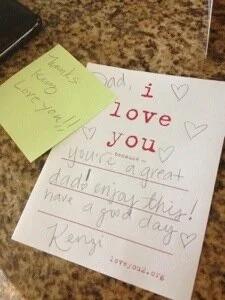 Thanks
Kenz
Love you!!
Dad,
i
love
you
because...
you're a great
dad! enjoy this!
have a good day
Kenzi
loveyou2.org